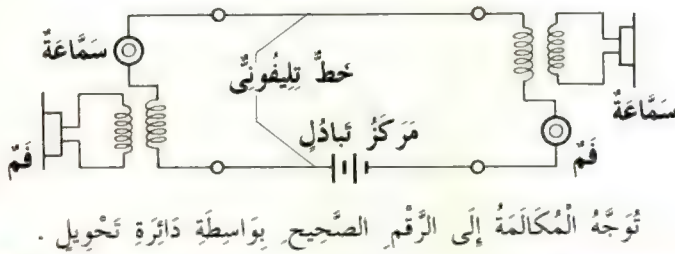 سَمَّاعَةٌ
خَطٌّ تِلِيفُونِىٌّ
سَمَّاعَةٌ
مَركَزُ تَبادُلٍ
فَمٌ
فَمٌ
تُوَجَّهُ الْمُكَالَمَةُ إِلَى الرَّقْمِ الصَّحِيحِ بِوَاسِطَةِ دَائِرَةِ تَحْوِيلٍ .